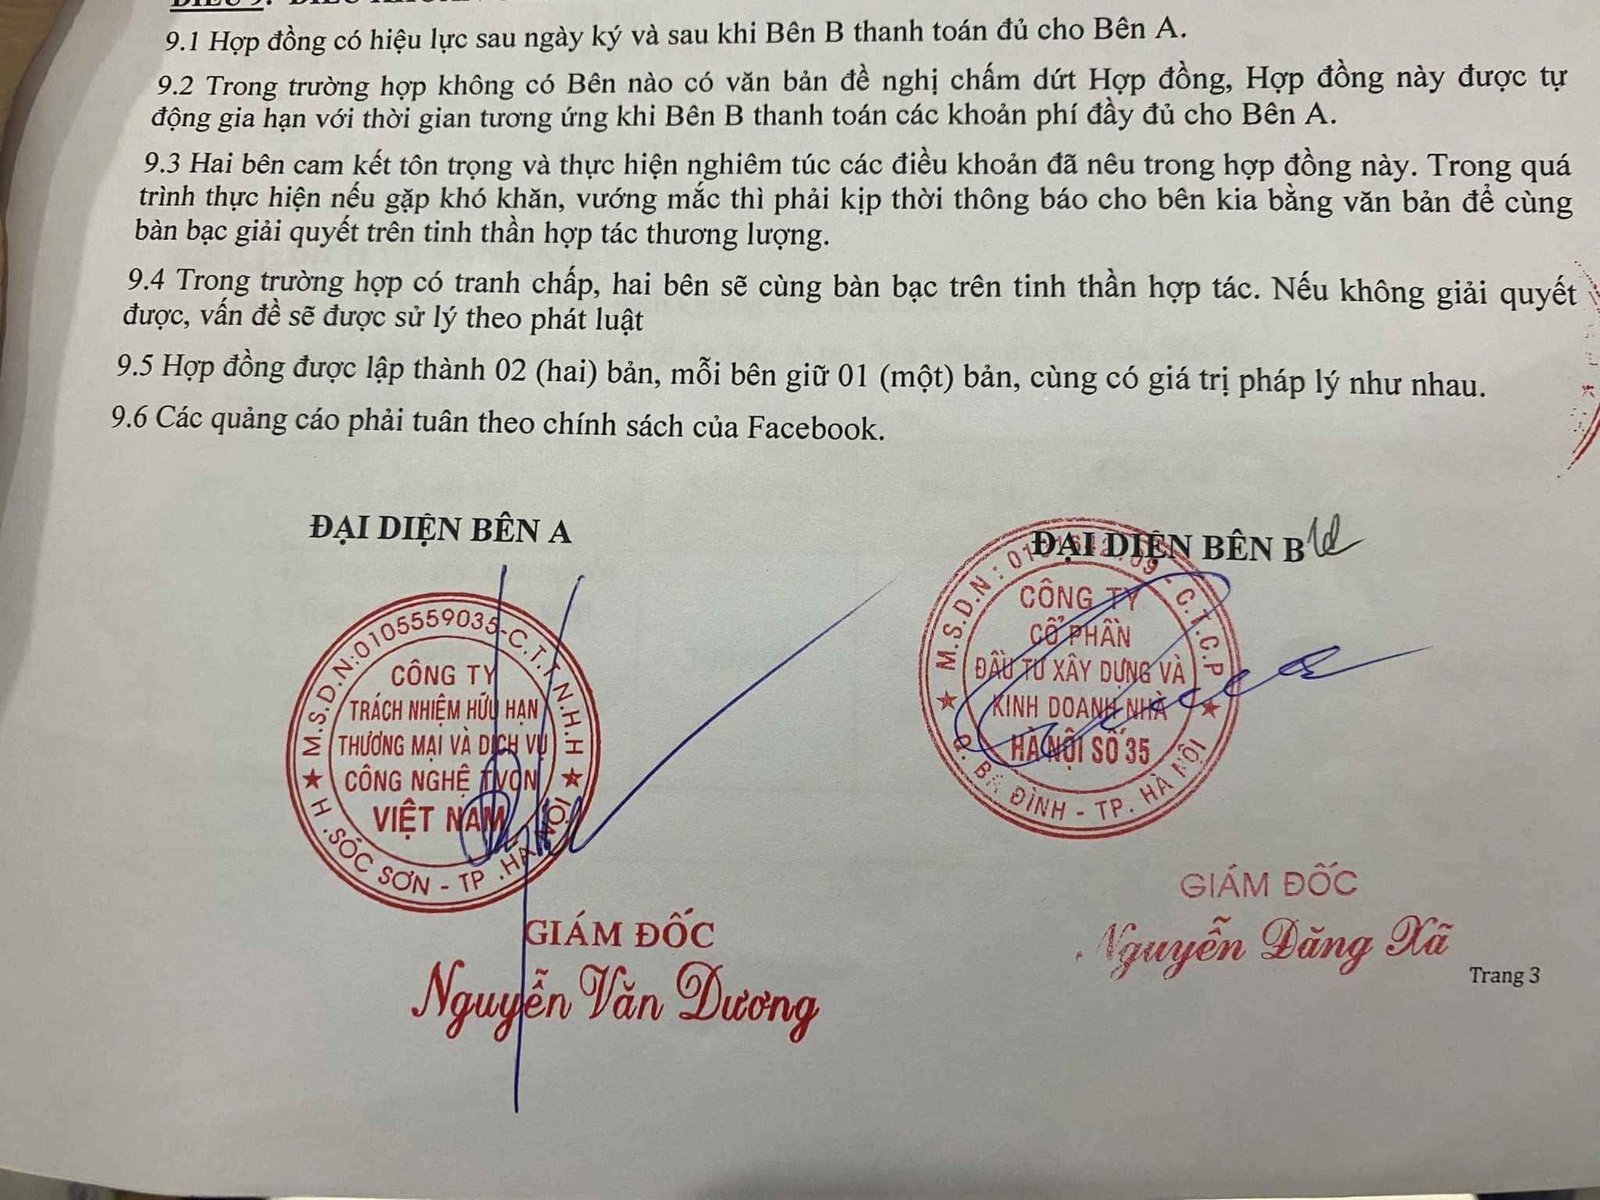 9.1 Hợp đồng có hiệu lực sau ngày ký và sau khi Bên B thanh toán đủ cho Bên A.
9.2 Trong trường hợp không có Bên nào có văn bản đề nghị chấm dứt Hợp đồng, Hợp đồng này được tự
động gia hạn với thời gian tương ứng khi Bên B thanh toán các khoản phí đầy đủ cho Bên A.
9.3 Hai bên cam kết tôn trọng và thực hiện nghiêm túc các điều khoản đã nêu trong hợp đồng này. Trong quá
trình thực hiện nếu gặp khó khăn, vướng mắc thì phải kịp thời thông báo cho bên kia bằng văn bản để cùng
bàn bạc giải quyết trên tinh thần hợp tác thương lượng.
9.4 Trong trường hợp có tranh chấp, hai bên sẽ cùng bàn bạc trên tinh thần hợp tác. Nếu không giải quyết
được, vấn đề sẽ được sử lý theo phát luật
9.5 Hợp đồng được lập thành 02 (hai) bản, mỗi bên giữ 01 (một) bản, cùng có giá trị pháp lý như nhau.
9.6 Các quảng cáo phải tuân theo chính sách của Facebook.
ĐẠI DIỆN BÊN A
M.S.D.N:0105559035-C.T.T.N.H.H
CÔNG TY
TRÁCH NHIỆM HỮU HẠN
THƯƠNG MẠI VÀ DỊCH VỤ
CÔNG NGHỆ TVON
VIỆT NAM
H.SÓC SƠN - TP.HÀ NỘI
GIÁM ĐỐC
Nguyễn Văn Dương
ĐẠI DIỆN BÊN B
M.S.D.N: - C.T.C.P
CÔNG TY
CỔ PHẦN
ĐẦU TƯ XÂY DỰNG VÀ
KINH DOANH NHÀ
HÀ NỘI SỐ 35
Q. BA ĐÌNH - TP. HÀ NỘI
GIÁM ĐỐC
Nguyễn Đăng Xã
Trang 3